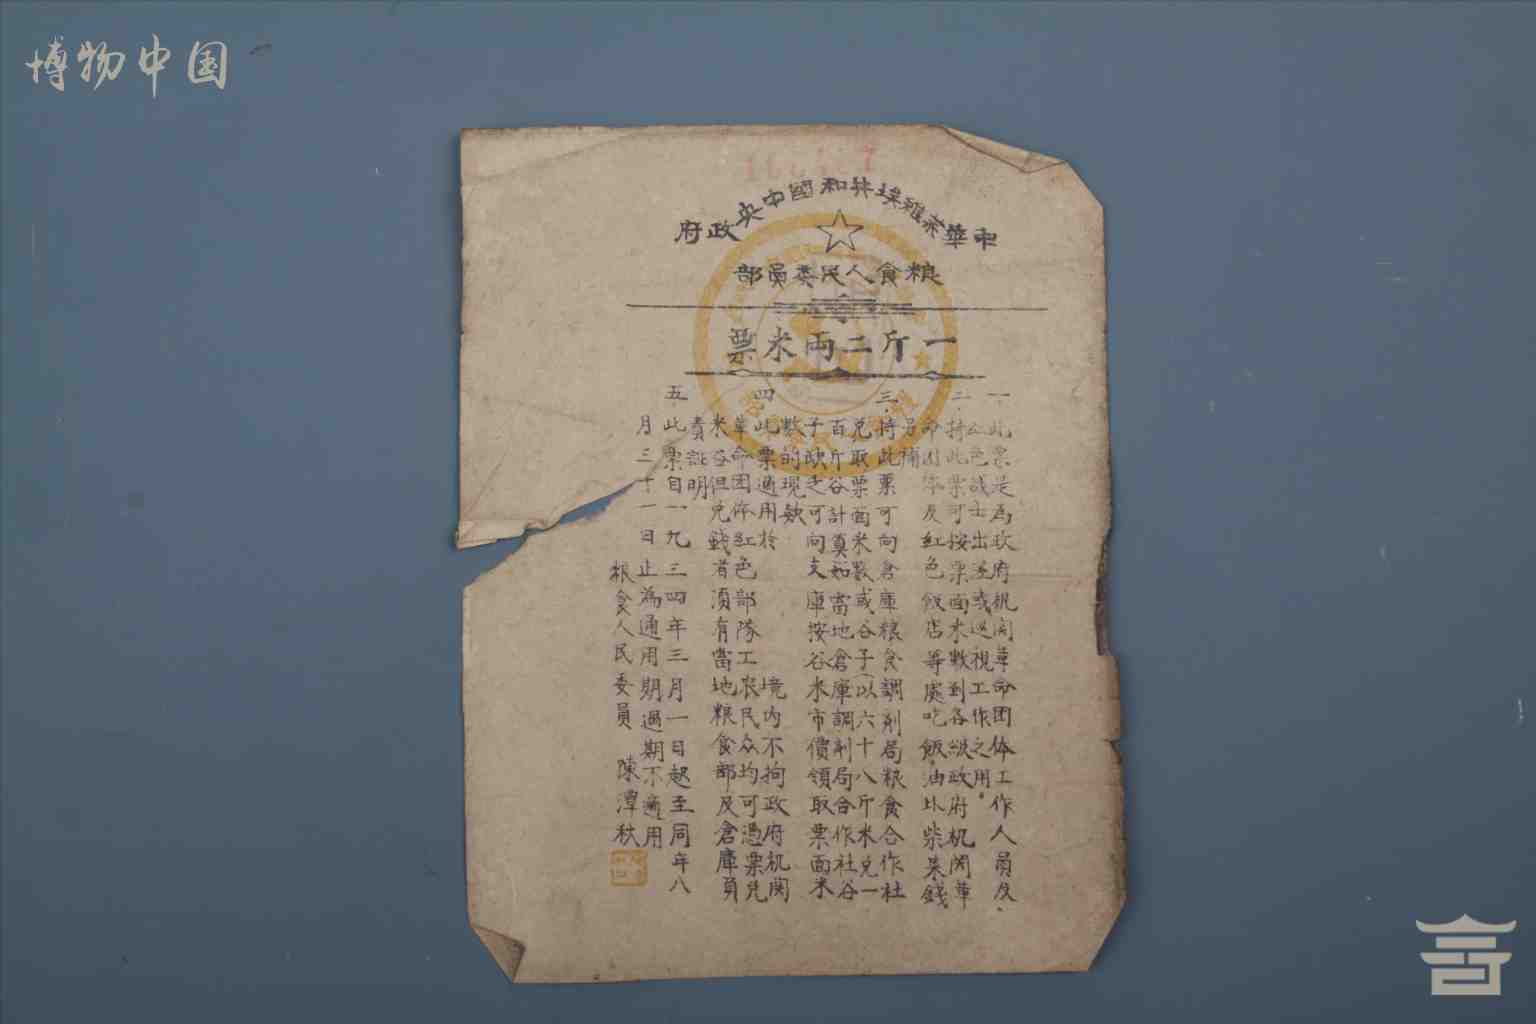 博物中国
中華苏維埃共和國中央政府
粮食人民委員部
一斤二両米票
一 此票是為政府机関革命团体工作人員及
紅色战士出差或巡視工作之用。
二 持此票可按票面米數到各級政府机関革
命团体及紅色飯店等處吃飯油盐柴菜錢
另補
三 持此票可向倉庫粮食調剂局粮食合作社
兑取票面米數或谷子(以六十八斤米兑一
百斤谷計算如當地倉庫調剂局合作社谷
子缺乏可向支庫按谷米市價領取票面米
數的現款
四 此票適用於 境内不拘政府机関
革命团体紅色部隊工农民众均可憑票兑
米谷但兑錢者須有當地粮食部及倉庫負
責証明
五 此票自一九三四年三月一日起至同年八
月三十一日止為通用期過期不適用
粮食人民委員 陳潭秋